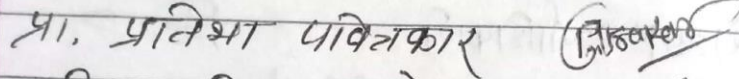 प्रा. प्रतिभा पवित्रकार